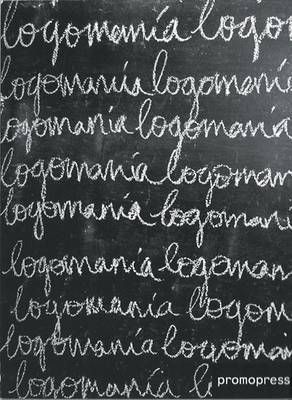 logomanía logo
logomanía logomaní
ogomanía logomanía
logomanía logoman
logomanía logomani
logomanía logoman
logomanía logom
logomanía logoman
logomanía l promopress